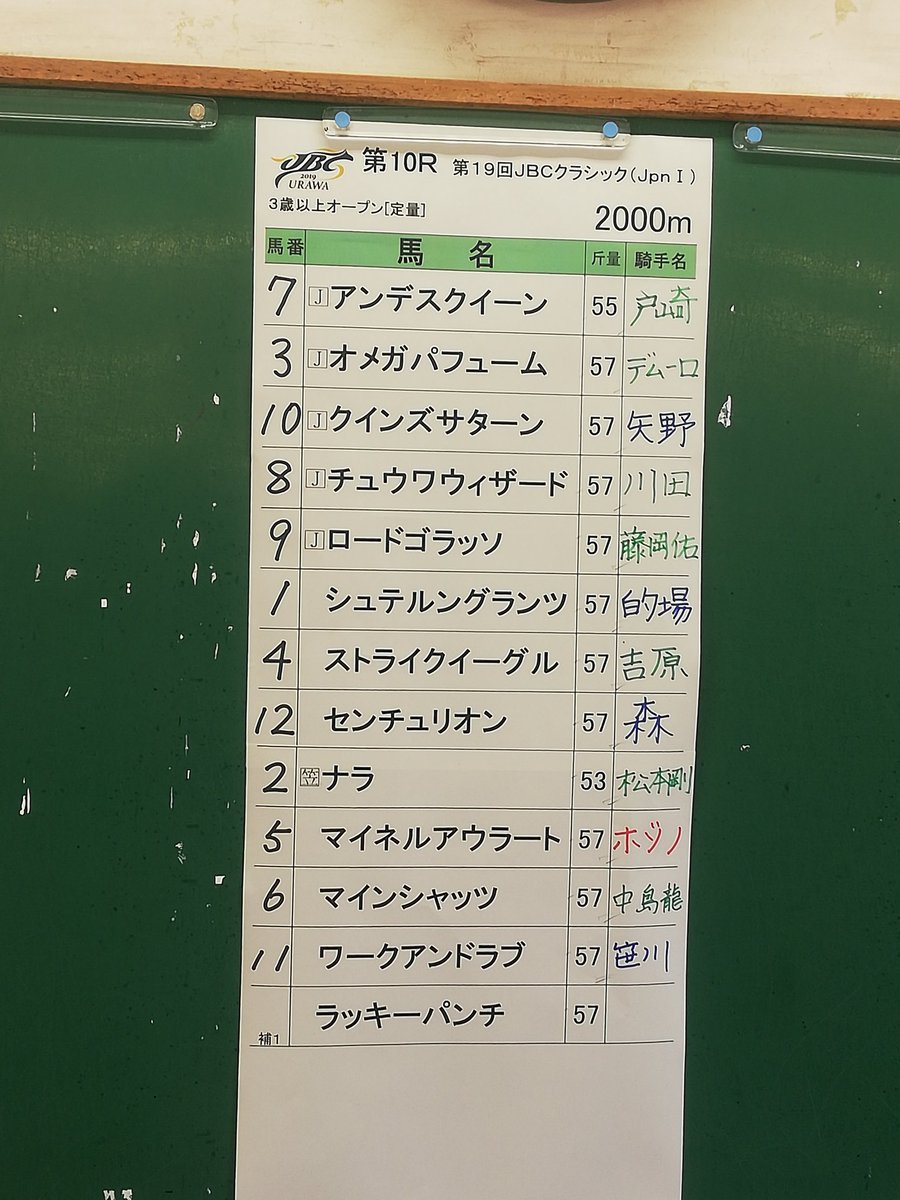 JBC 2019 URAWA 第10R 第19回JBCクラシック(JpnⅠ)
3歳以上オープン[定量] 2000m
馬番 馬名 斤量 騎手名
7 J アンデスクイーン 55 戸崎
3 J オメガパフューム 57 デムーロ
10 J クインズサターン 57 矢野
8 J チュウワウィザード 57 川田
9 J ロードゴラッソ 57 藤岡佑
1 シュテルングランツ 57 的場
4 ストライクイーグル 57 吉原
12 センチュリオン 57 森
2 笠 ナラ 53 松本剛
5 マイネルアウラート 57 ホジノ
6 マインシャッツ 57 中島龍
11 ワークアンドラブ 57 笹川
補1 ラッキーパンチ 57